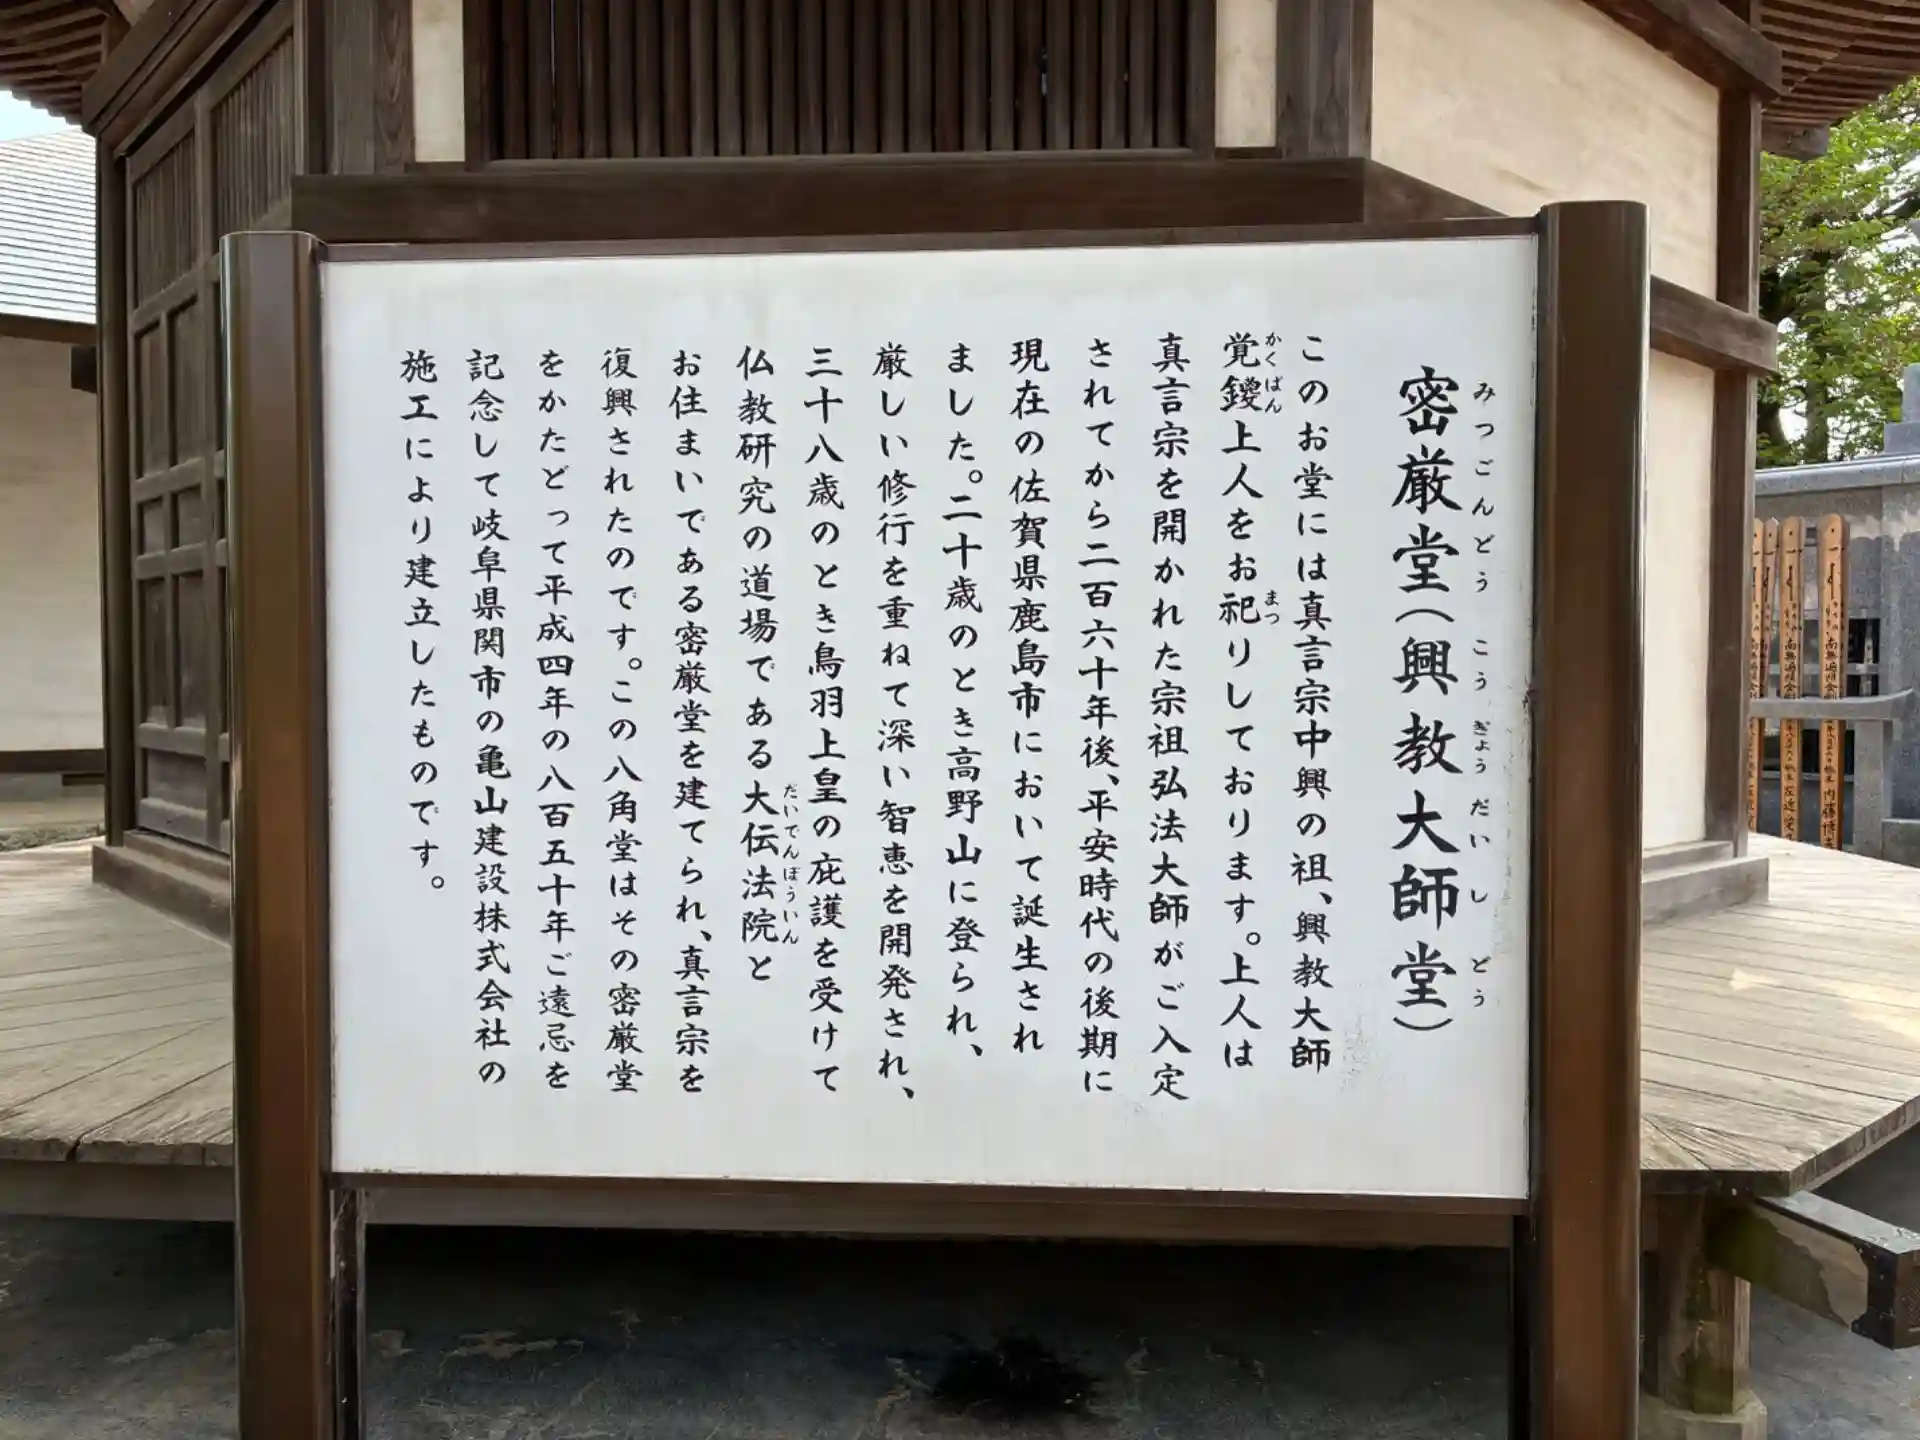 密厳堂（興教大師堂）
みつごんどう こうぎょうだいしどう
このお堂には真言宗中興の祖、興教大師
覚鑁上人をお祀りしております。上人は
かくばん まつ
真言宗を開かれた宗祖弘法大師がご入定
されてから二百六十年後、平安時代の後期に
現在の佐賀県鹿島市において誕生され
ました。二十歳のとき高野山に登られ、
厳しい修行を重ねて深い智恵を開発され、
三十八歳のとき鳥羽上皇の庇護を受けて
仏教研究の道場である大伝法院と
だいでんぼういん
お住まいである密厳堂を建てられ、真言宗を
復興されたのです。この八角堂はその密厳堂
をかたどって平成四年の八百五十年ご遠忌を
記念して岐阜県関市の亀山建設株式会社の
施工により建立したものです。